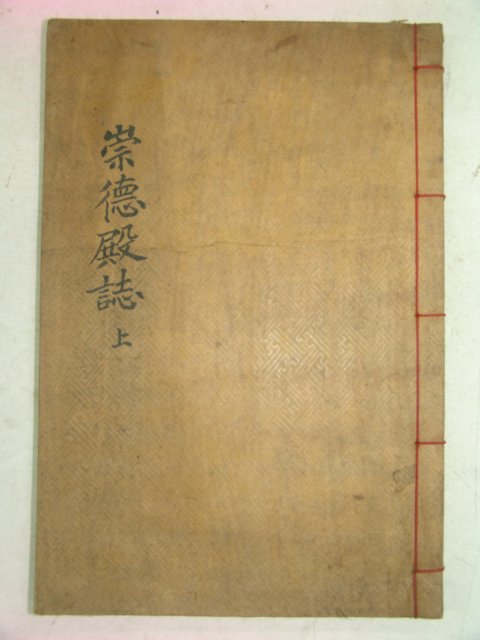 崇德殿誌 上